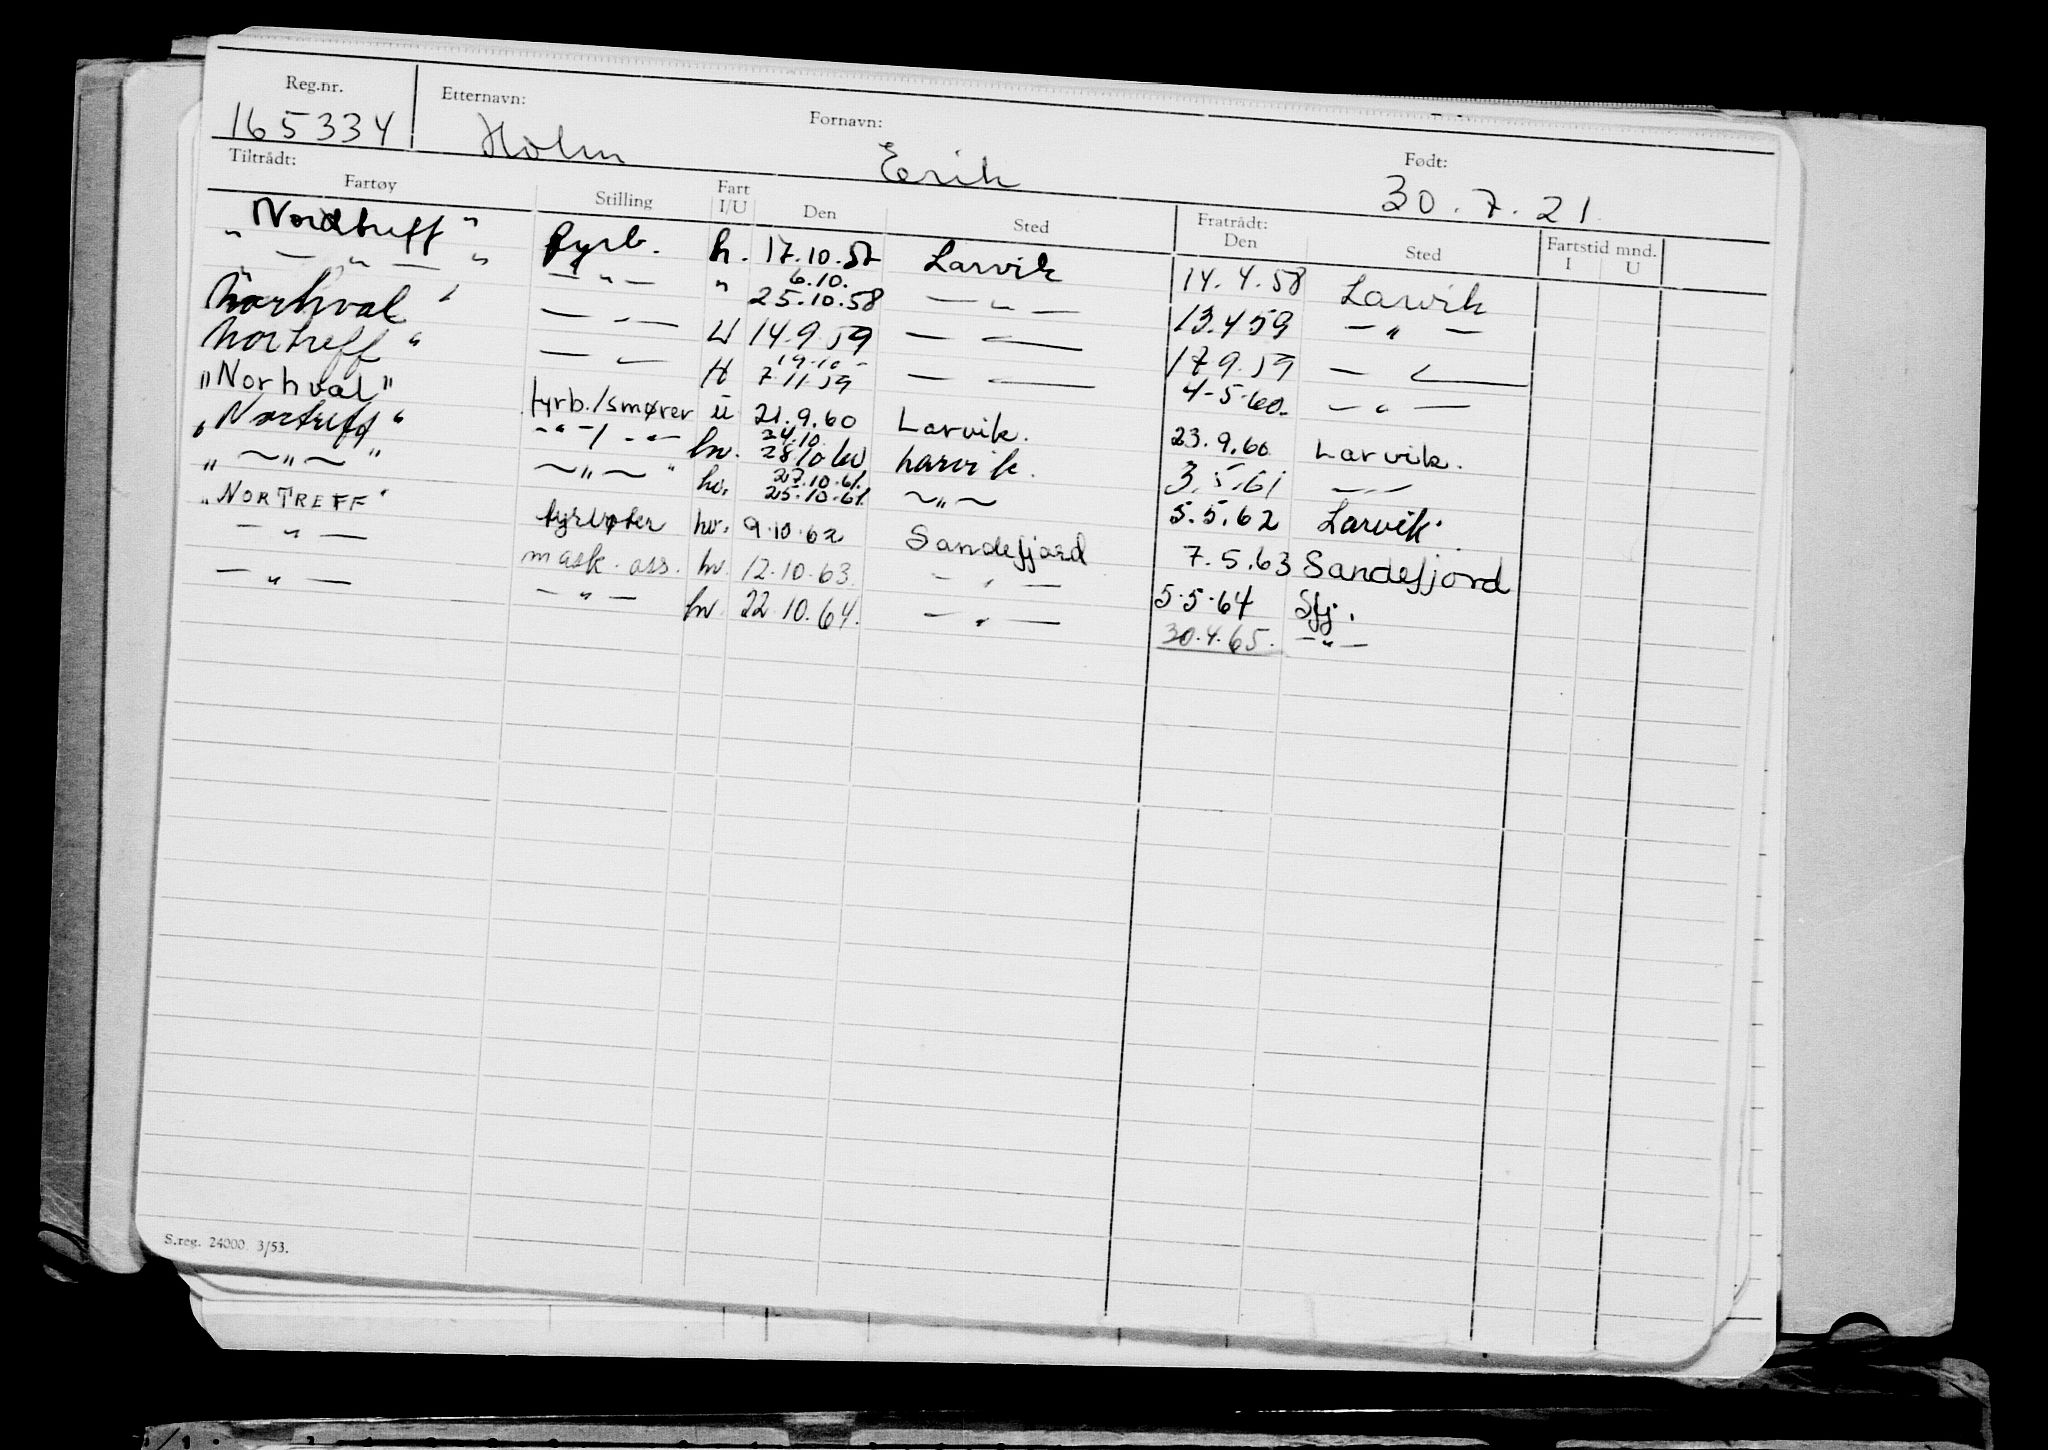 Reg.nr. Etternavn: Fornavn: Født:
165334 Holm Erik 30.7.21.
Tiltrådt: Fratrådt:
Fartøy Stilling Fart I/U Den Sted Den Sted Fartstid mnd. I U
"Nordtreff" fyrb. h. 17.10.57 Larvik 14.4.58 Larvik
" — " — " — " — " 6.10. 25.10.58 — " — 13.4.59 — " —
"Norhval" — " — U 14.9.59 — " — 17.9.59 — " —
Nortreff" — " — H 19.10 - 7.11.59 — " — 4-5-60- — " —
"Norhval" fyrb./smører ü 21.9.60 Larvik. 23.9.60 Larvik.
"Nortreff" - " - / - " - hv. 24.10. 28.10.60 Larvik. 3.5.61 — " —
" ~ " ~ " ~ " ~ " hv. 27.10.61. 25.10.61. ~ " ~ 5.5.62 Larvik.
"NORTREFF" fyrbøter hv. 9.10.62 Sandefjord 7.5.63 Sandefjord
— " — mask. ass. hv. 12.10.63. — " — 5.5.64 Sfj.
— " — — " — hv. 22.10.64. — " — 30.4.65. — " —
S.reg. 24000 3/53.